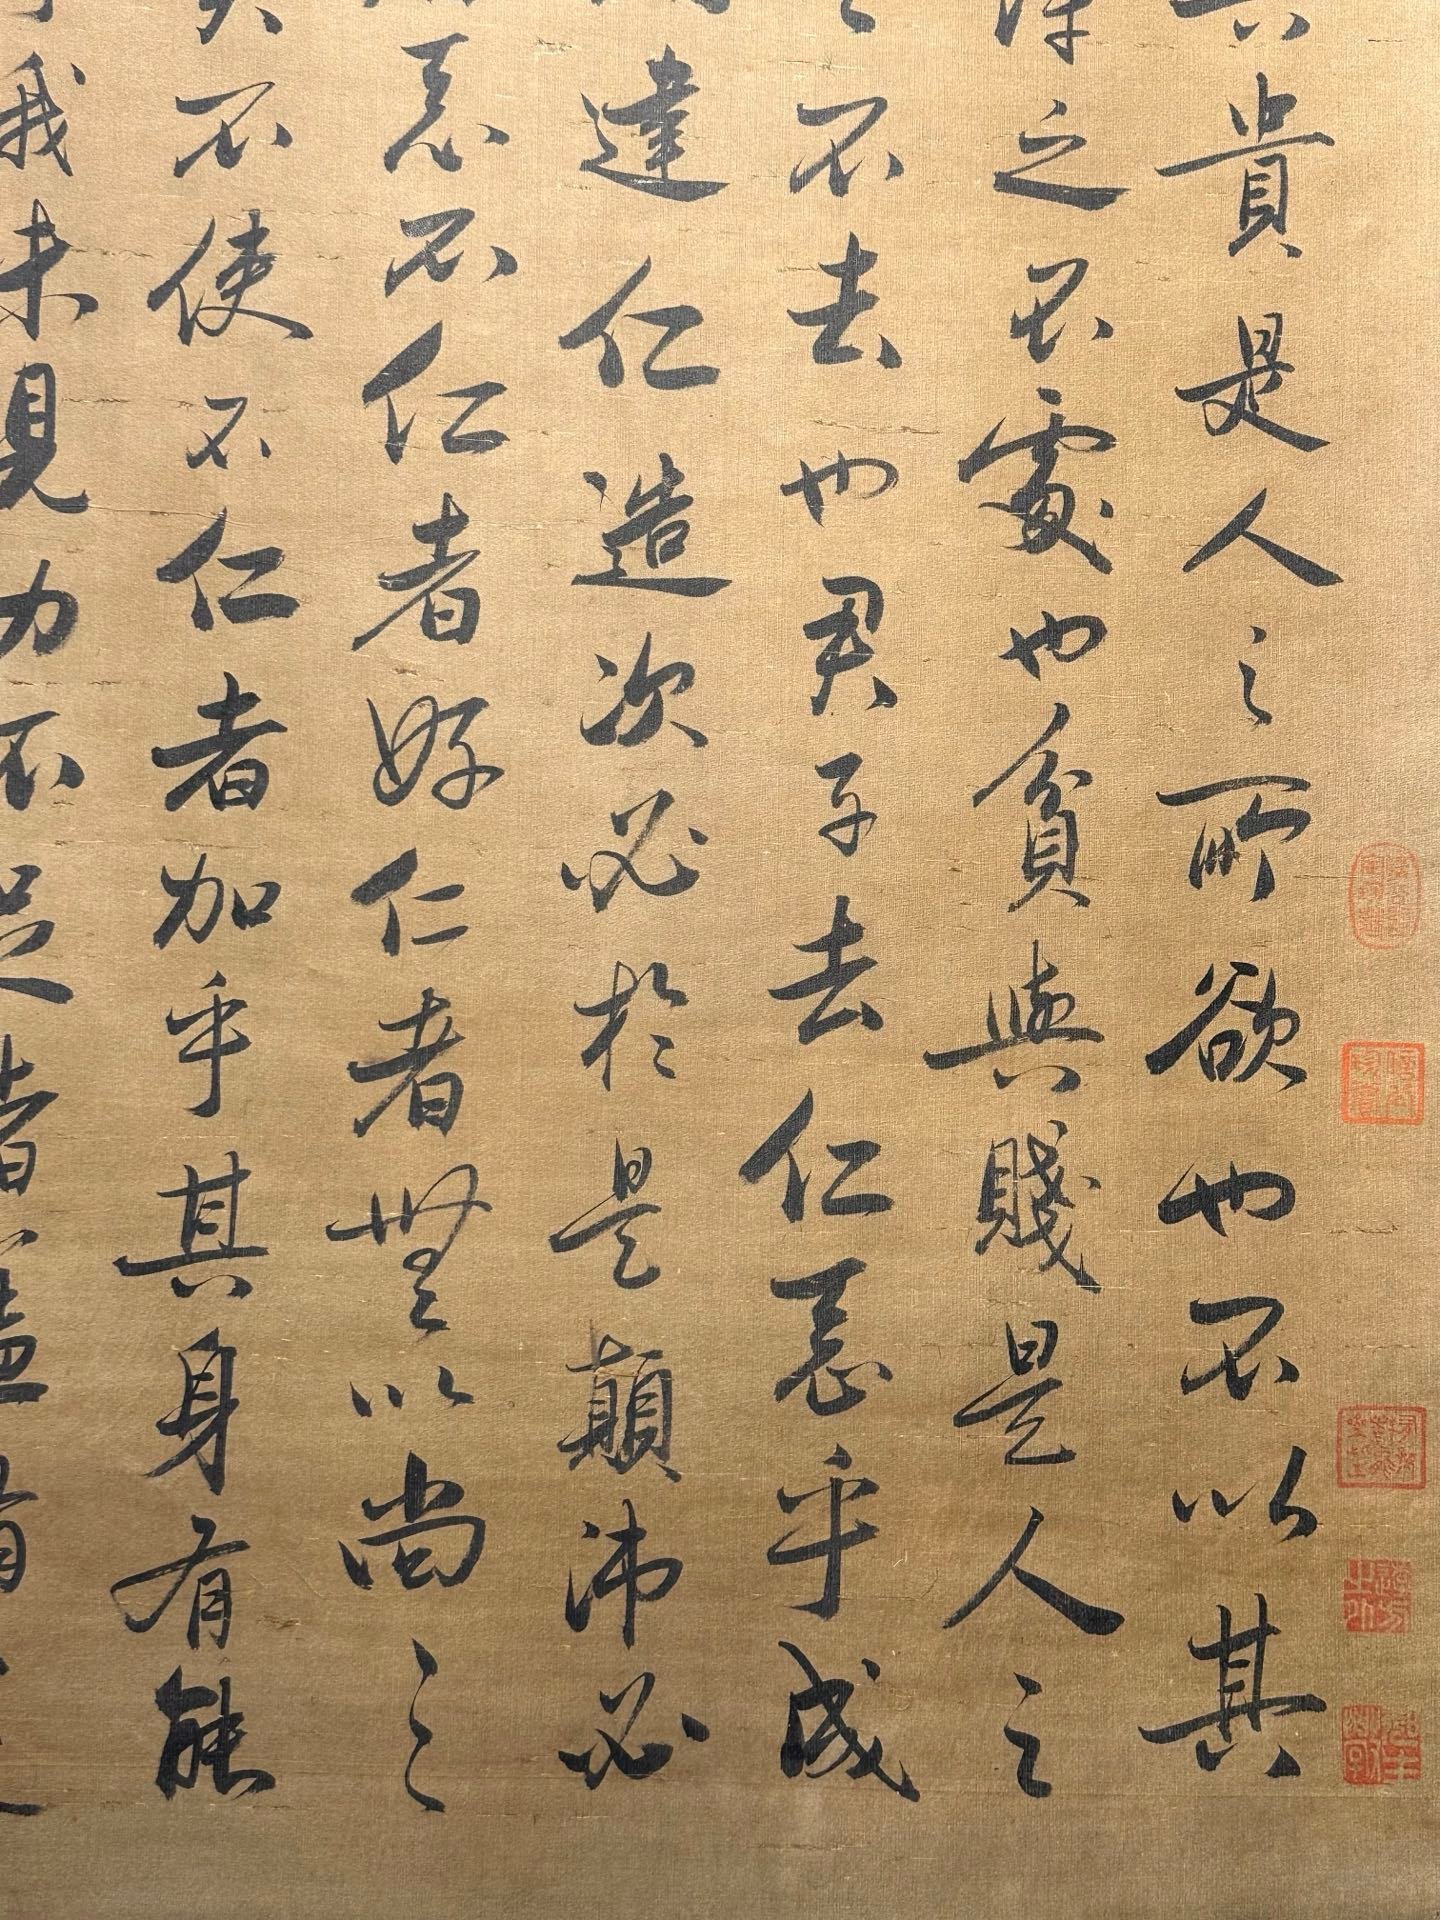 貴是人之所欲也不以其
之不處也貧與賤是人之
不去也君子去仁惡乎成
達仁造次必於是顛沛必
惡不仁者好仁者無以尚之
不使不仁者加乎其身有能
我未見力不足者蓋有